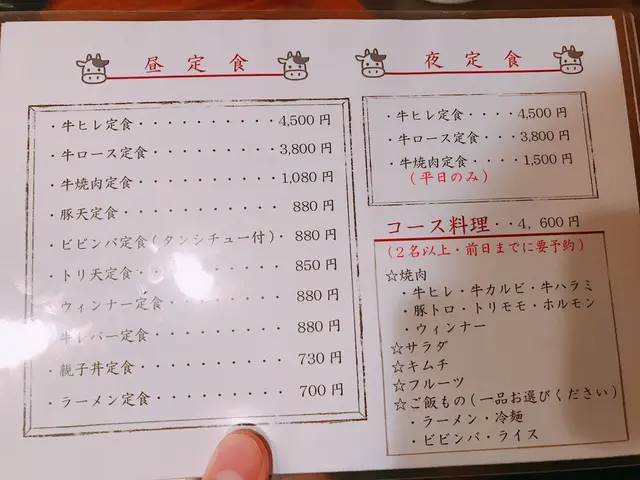 昼定食
・牛ヒレ定食・・・・・・・・・・4,500円
・牛ロース定食・・・・・・・・・3,800円
・牛焼肉定食・・・・・・・・・・1,080円
・豚天定食・・・・・・・・・・・880円
・ビビンバ定食(タンシチュー付)・880円
・トリ天定食・・・・・・・・・・850円
・ウィンナー定食・・・・・・・・880円
・牛レバー定食・・・・・・・・・880円
・親子丼定食・・・・・・・・・・730円
・ラーメン定食・・・・・・・・・700円
夜定食
・牛ヒレ定食・・・・・4,500円
・牛ロース定食・・・・3,800円
・牛焼肉定食・・・・1,500円
(平日のみ)
コース料理・・4,600円
(2名以上・前日までに要予約)
☆焼肉
・牛ヒレ・牛カルビ・牛ハラミ
・豚トロ・トリモモ・ホルモン
・ウィンナー
☆サラダ
☆キムチ
☆フルーツ
☆ご飯もの(一品お選びください)
・ラーメン・冷麺
・ビビンバ・ライス